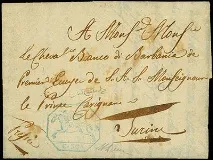 A Monsr Monsr
le Chevalr Bianco di Barbania
Premier Ecuyer de S. A. S. Monseigneur
le Prince Carignan
Turin